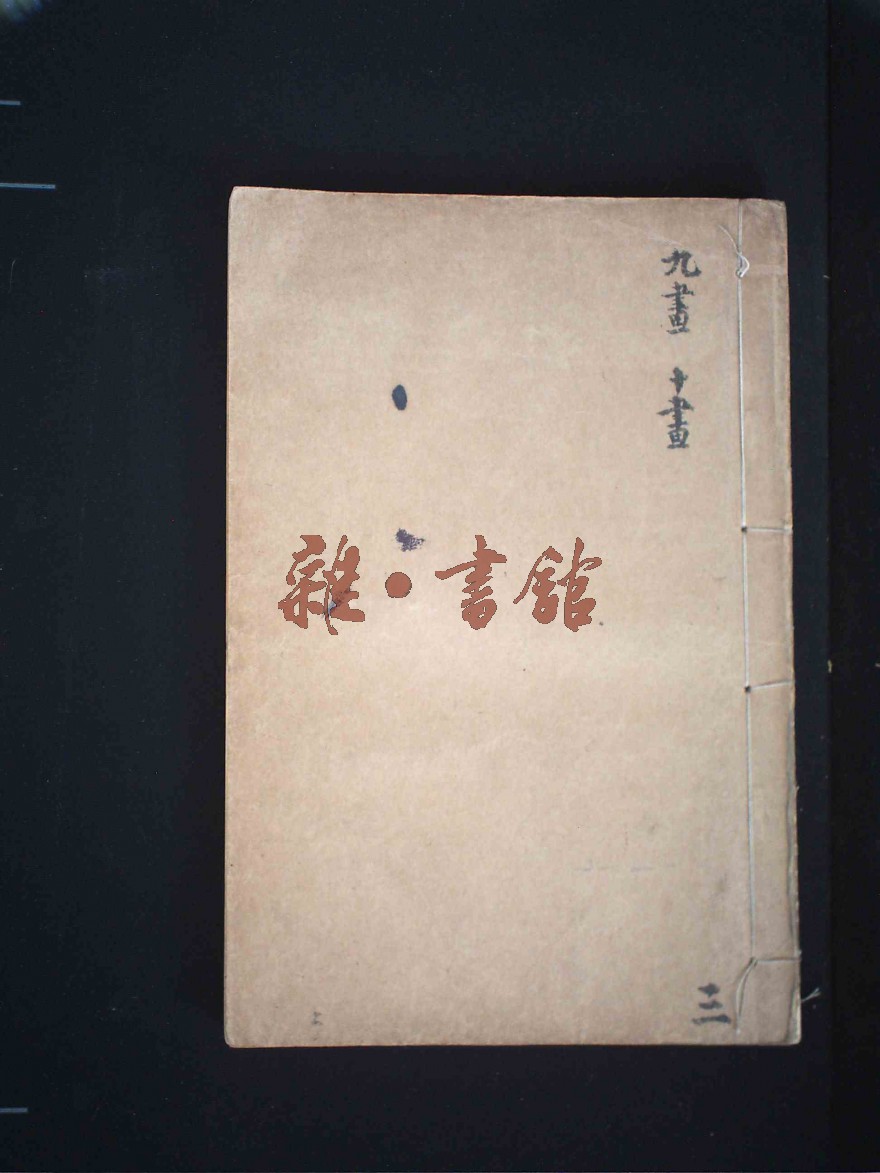 九畫 十畫
三
雜·書館